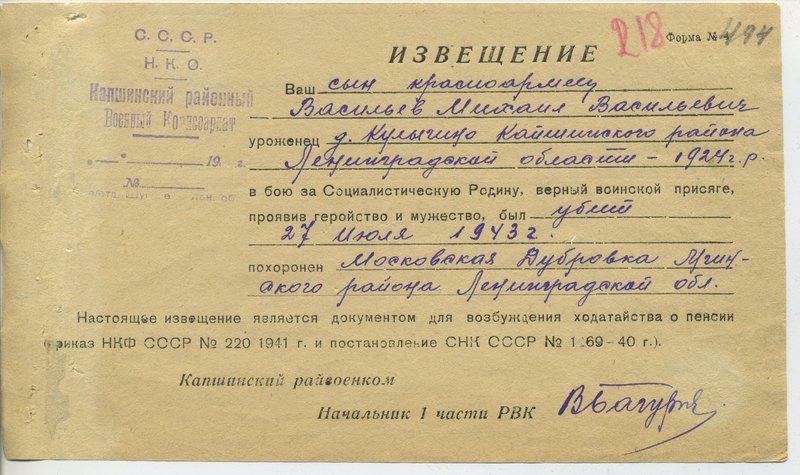 С. С. С. Р.
Н. К. О.
Капшинский районный
Военный Комиссариат
19 г.
№
218
494
Форма № 4
ИЗВЕЩЕНИЕ
Ваш сын красноармеец
Васильев Михаил Васильевич
уроженец д. Кулыгино Капшинского района
Ленинградской области – 1924 г. р.
в бою за Социалистическую Родину, верный воинской присяге,
проявив геройство и мужество, был убит
27 июля 1943 г.
похоронен Московская Дубровка Мгин-
ского района Ленинградской обл.
Настоящее извещение является документом для возбуждения ходатайства о пенсии
(приказ НКФ СССР № 220 1941 г. и постановление СНК СССР № 1269-40 г.).
Капшинский райвоенком
Начальник 1 части РВК